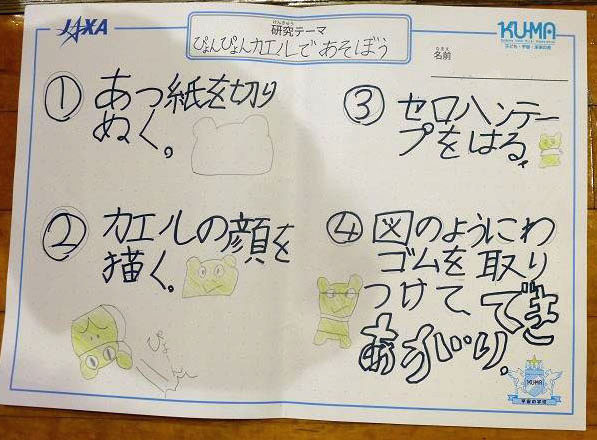 JAXA
けんきゅう
研究テーマ
ぴょんぴょんカエルであそぼう
KUMA
子ども・宇宙・未来の会
なまえ
名前
① あつ紙を切り
ぬく。
② カエルの顔を
描く。
ぴょーん
③ セロハンテー
プをはる。
④ 図のようにわ
ゴムを取り
つけて、でき
あがり。
KUMA
宇宙の学校